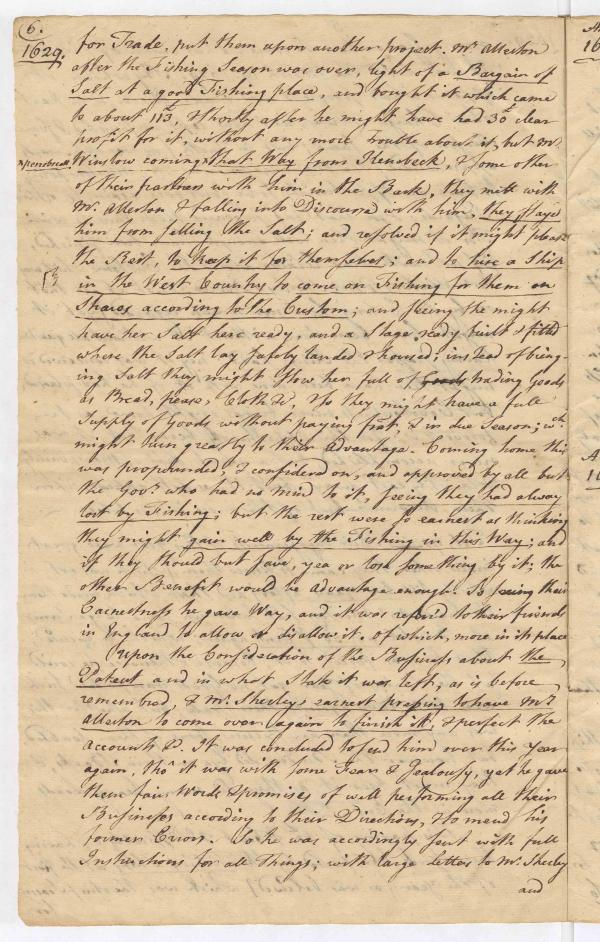 6.
1629.
for Trade, put them upon another project. Mr Allerton
after the Fishing Season was over, light of a Bargain of
Salt at a good Fishing place, and bought it which came
to about 113£, & shortly after he might have had 30£ clear
profit for it, without any more Trouble about it, but Mr
Winslow coming that Way from Kenebeck, & some other
of their partners with him in the Bark, they mett with
Mr. Allerton & falling into Discourse with him, they stayd
him from selling the Salt; and resolved if it might please
the Rest, to keep it for themselves; and to hire a Ship
in the West Country to come on Fishing for them on
Shares according to the Custom; and seeing she might
have her Salt here ready, and a Stage ready built & fitted
where the Salt lay safely landed & housed; instead of bring-
ing Salt they might stow her full of Goods trading Goods
as Bread, pease, Cloth &c, & so they might have a full
Supply of Goods without paying frat, & in due Season; wch.
might turn greatly to their Advantage. Coming home, this
was propounded, & considered on, and approved by all but
the Govr. who had no mind to it, seeing they had alway
lost by Fishing; but the rest were so earnest as thinking
they might gain well by the Fishing in this Way; and
if they should but save, yea or lose something by it; the
other Benefit would be advantage enough. So seeing their
Earnestness he gave Way, and it was referd to their friends
in England to allow or disallow it, of which, more in its place
Upon the Consideration of the Business about the
Patent and in what State it was left, as is before
remembred, & Mr. Sherley's earnest pressing to have Mr.
Allerton to come over again to finish it, & perfect the
accounts &c. It was concluded to send him over this Year
again, tho' it was with some Fear & Jealousy, yet he gave
them fair Words & promises of well performing all their
Business according to their Directions, & to mend his
former Errors. So he was accordingly sent with full
Instructions for all Things; with large letters to Mr. Sherley
and